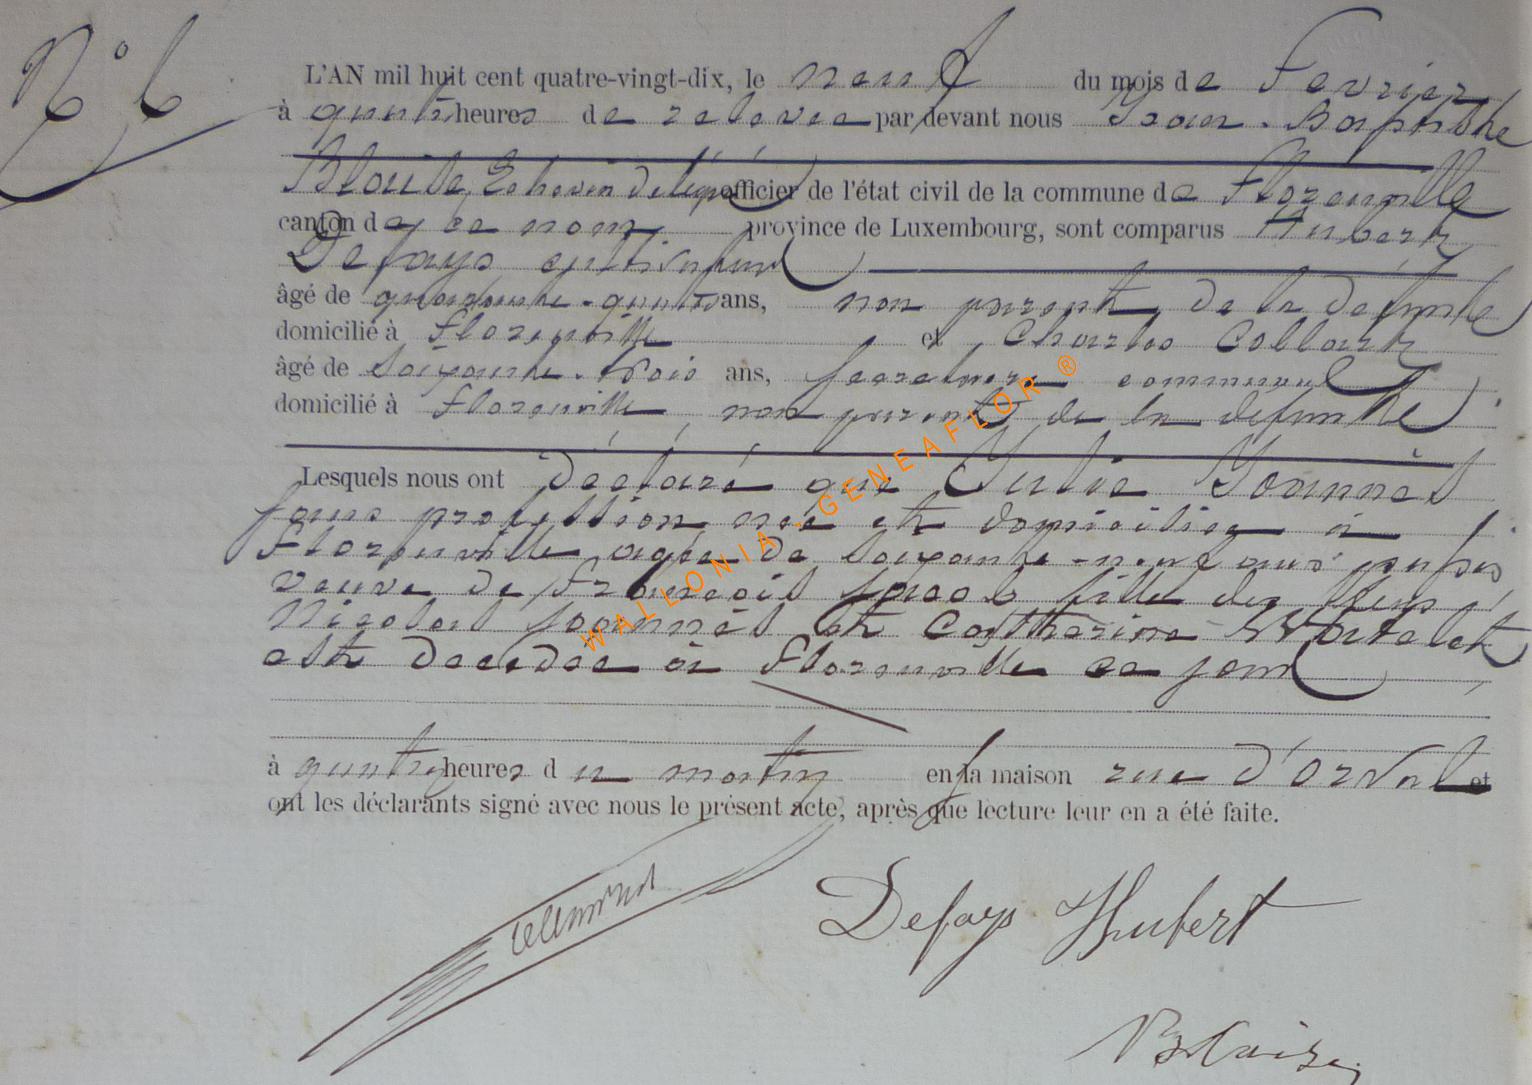 N° 6
L'AN mil huit cent quatre-vingt-dix, le neuf du mois de Fevrier
à quatre heures de relevée par devant nous Jean-Baptiste
Blaise, Echevin délégué officier de l'état civil de la commune de Florenville
canton de ce nom province de Luxembourg, sont comparus Hubert
Defays cultivateur
âgé de quarante-quatre ans, non parent de la défunte
domicilié à Florenville et Charles Collart
âgé de soixante-trois ans, secretaire communal
domicilié à Florenville non parent de la défunte
Lesquels nous ont déclaré que Julie Joannès
sans profession née et domiciliée à
Florenville agée de soixante-neuf ans
veuve de François fille des feus
Nicolas Joannès et Catherine
est decedée à Florenville ce jour
à quatre heures du matin en la maison rue d'Orval et
ont les déclarants signé avec nous le présent acte, après que lecture leur en a été faite.
Defays Hubert
Blaise
WALLONIA - GENEAFLOR ®